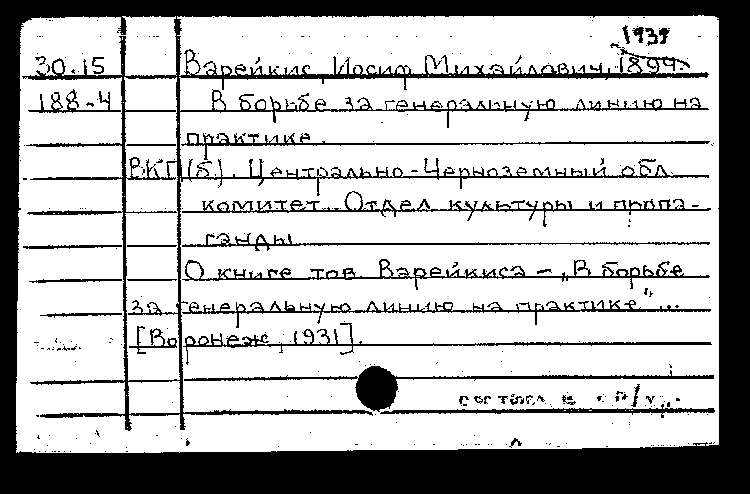 1939
30.15 Варейкис, Иосиф Михайлович, 1894-
188-4 В борьбе за генеральную линию на
практике.
ВКП(б). Центрально-Черноземный обл.
комитет. Отдел культуры и пропа-
ганды
О книге тов. Варейкиса - „В борьбе
за генеральную линию на практике"...
[Воронеж, 1931].